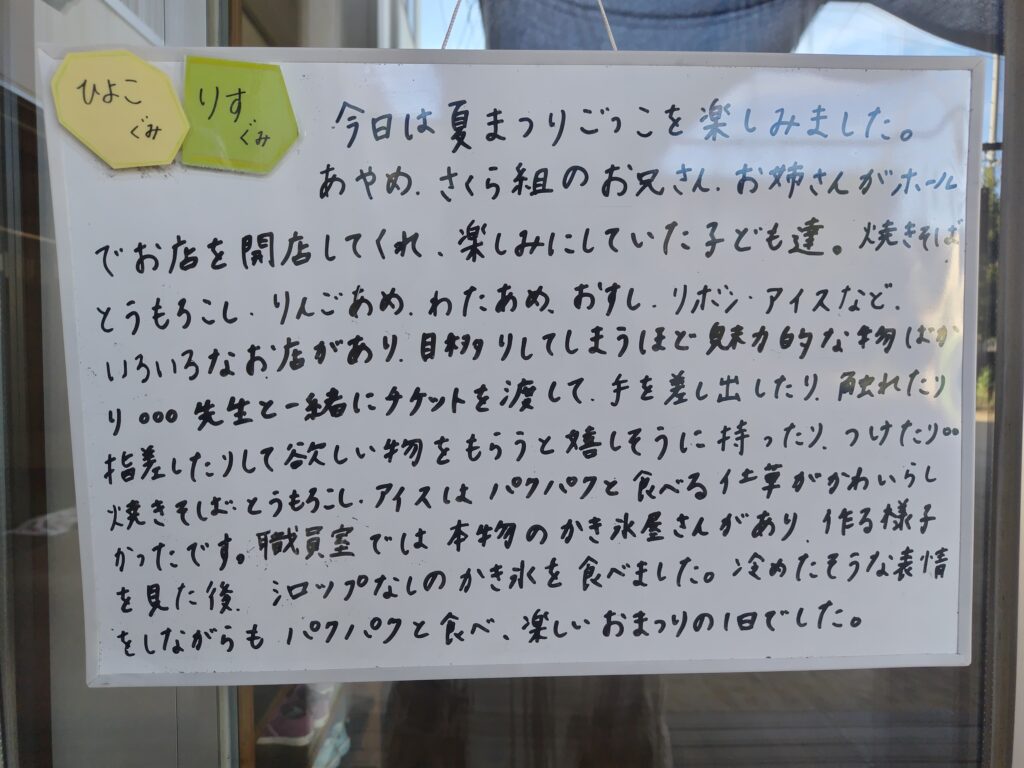 ひよこ
ぐみ
りす
ぐみ
今日は夏まつりごっこを楽しみました。
あやめ、さくら組のお兄さん、お姉さんがホール
でお店を開店してくれ、楽しみにしていた子ども達。焼きそば
とうもろこし、りんごあめ、わたあめ、おすし、リボン・アイスなど、
いろいろなお店があり、目移りしてしまうほど魅力的な物ばか
り。。。先生と一緒にチケットを渡して、手を差し出したり、触れたり
指差したりして欲しい物をもらうと嬉しそうに持ったり、つけたり。。
焼きそば・とうもろこし・アイスは パクパクと食べる仕草がかわいらし
かったです。職員室では本物のかき氷屋さんがあり、作る様子
を見た後、シロップなしのかき氷を食べました。冷めたそうな表情
をしながらも パクパクと食べ、楽しいおまつりの1日でした。